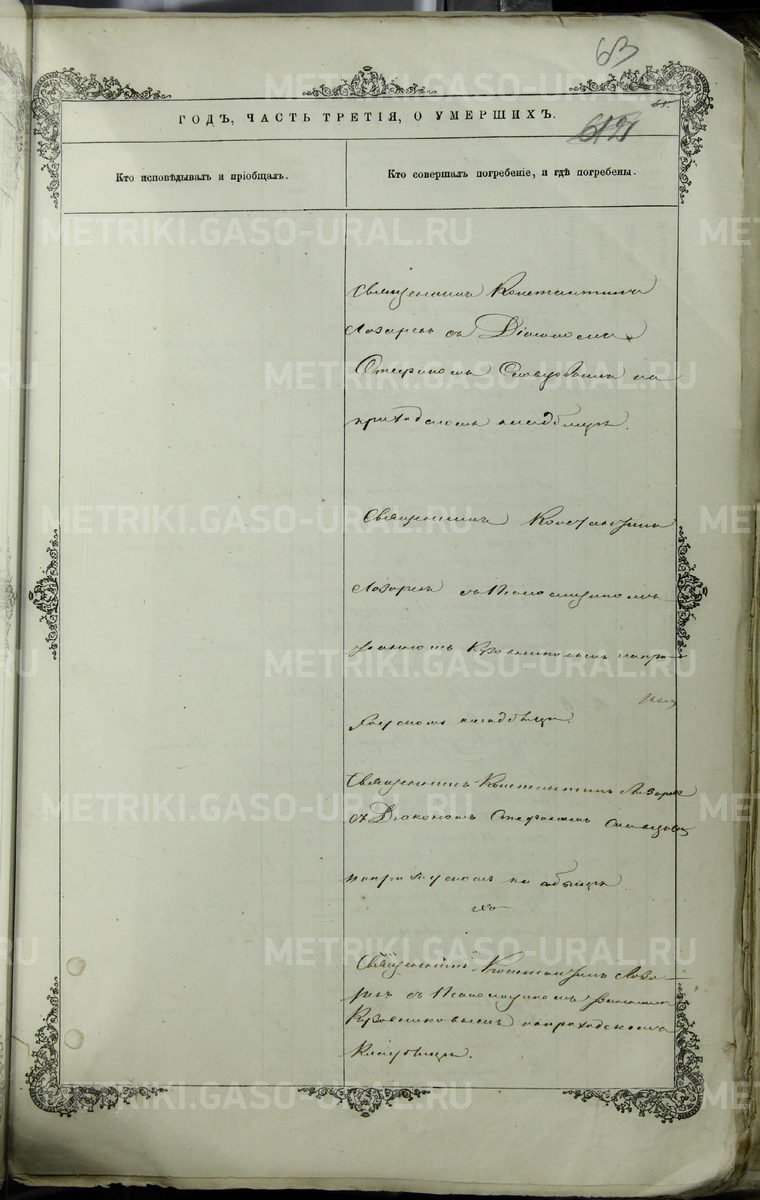 63
ГОДЪ, ЧАСТЬ ТРЕТІЯ, О УМЕРШИХЪ.
Кто исповѣдывалъ и пріобщалъ.
Кто совершалъ погребеніе, и гдѣ погребены.
Священникъ Константинъ
Лазаревъ съ Діакономъ
Стефаномъ на
приходскомъ кладбищѣ.
Священникъ Константинъ
Лазаревъ съ Псаломщикомъ
Кузовниковымъ напри-
ходскомъ кладбищѣ.
Священникъ Константинъ Лазаревъ
съ Діакономъ Стефаномъ
наприходскомъ кладбищѣ
Священникъ Константинъ Лаза-
ревъ съ Псаломщикомъ
Кузовниковымъ наприходскомъ
Кладбищѣ.
METRIKI.GASO-URAL.RU